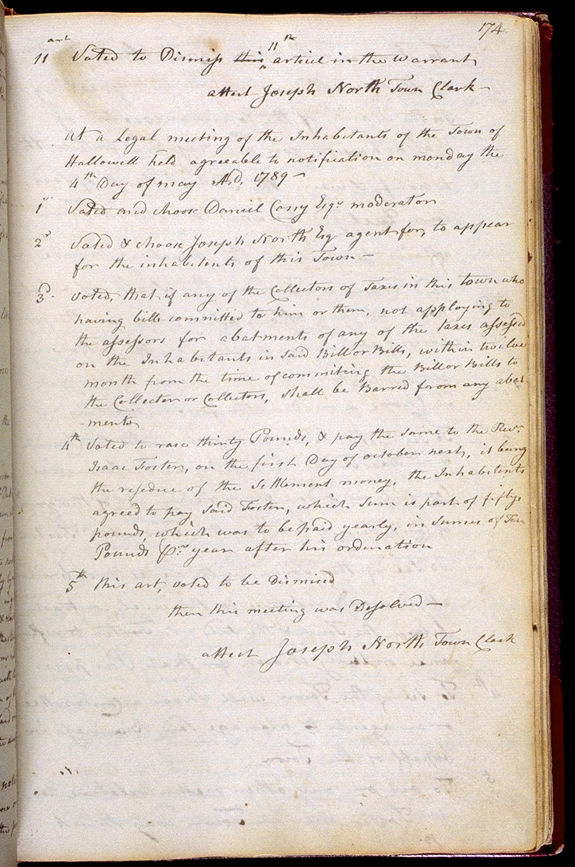 174
11 art Voted to Dismiss this 11th articel in the Warrant
attest Joseph North Town Clark
At a Legal meeting of the Inhabitants of the Town of
Hallowell held agreeable to notification on monday the
4th Day of may A.D. 1789
1st Voted and choose Daniel Cony Esqr moderator
2d Voted & choose Joseph North Esq agent for, to appear
for the inhabitents of this Town
3d Voted, that if any of the Collectors of Taxes in this town who
having bills committed to him or them, not applying to
the assessors for abatments of any of the taxes assessed
on the Inhabitants in said Bill or Bills, within twelve
month from the time of commiting the Bill or Bills to
the Collector or Collectors, shall be Barred from any abat-
ments
4th Voted to rase thirty Pounds, & pay the same to the Revr
Isaac Foster, on the first Day of october next, it being
the resedue of the Settlement money, the Inhabitents
agreed to pay said Foster, which sum is part of fifty
pounds, which was to be paid yearly, in sumes of Ten
Pounds Pr year after his ordination
5th this art, voted to be Dismised
then this meeting was Desolved
attest Joseph North Town Clark